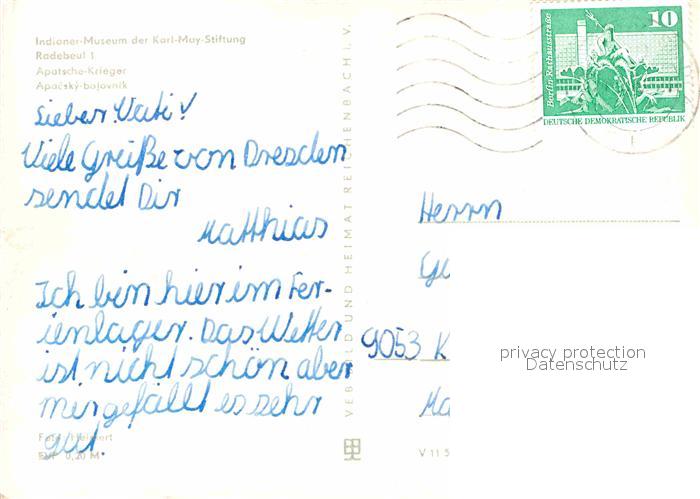 Indianer-Museum der Karl-May-Stiftung
Radebeul 1
Apatsche-Krieger
Apačský-bojovník
Lieber Vati!
Viele Greiße von Dresden
sendet Dir
Matthias
Ich bin hier im Fer-
ienlager. Das Wetter
ist nicht schön aber
mir gefällt es sehr
gut.
EVP 0,20 M
VEB BILD UND HEIMAT REICHENBACH V.
V 11 5
Berlin Rathausstraße
10
DEUTSCHE DEMOKRATISCHE REPUBLIK
Herrn
9053 K
privacy protection
Datenschutz